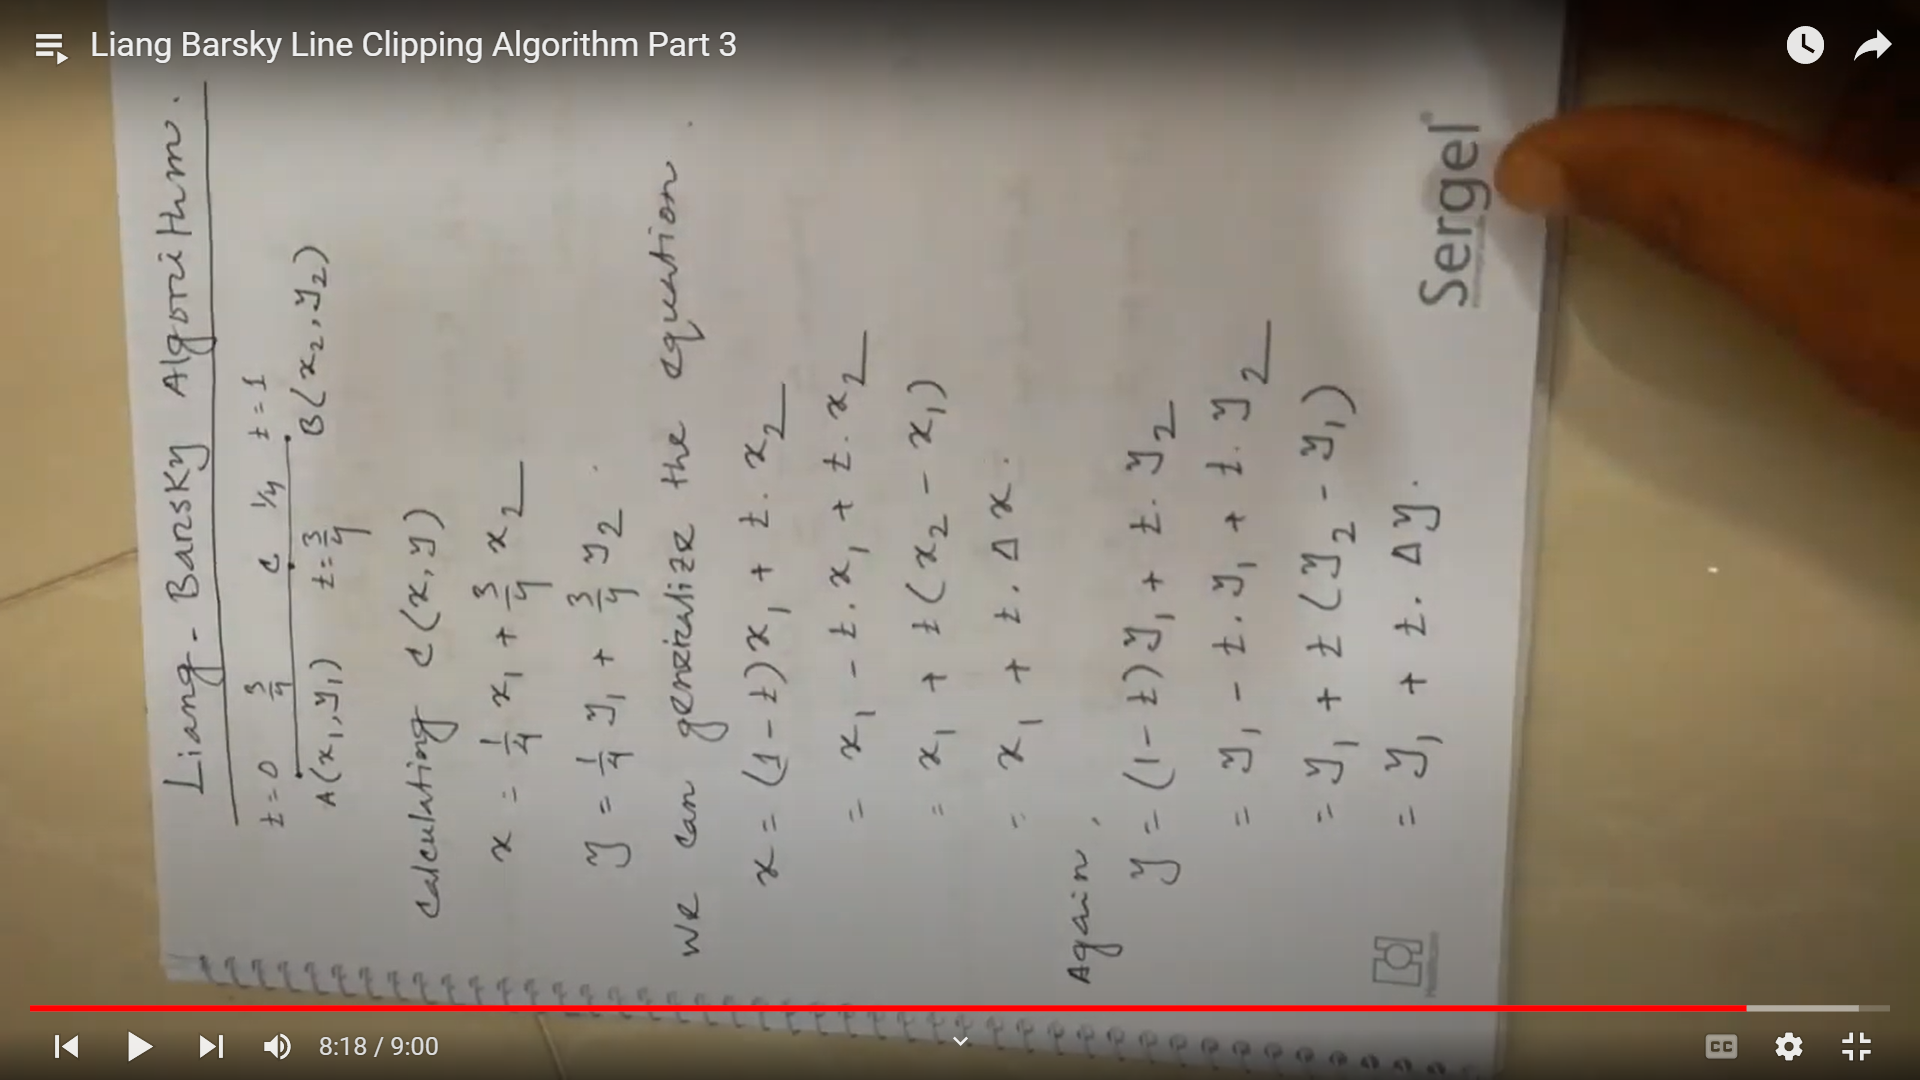 Liang Barsky Line Clipping Algorithm Part 3
Liang-Barsky Algorithm.
t=0 3/4 c 1/4 t=1
A(x₁,y₁) t=3/4 B(x₂,y₂)
calculating c(x,y)
x = 1/4 x₁ + 3/4 x₂
y = 1/4 y₁ + 3/4 y₂.
we can generalize the equation.
x = (1-t)x₁ + t.x₂
= x₁ - t.x₁ + t.x₂
= x₁ + t(x₂ - x₁)
= x₁ + t.Δx.
Again,
y = (1-t)y₁ + t.y₂
= y₁ - t.y₁ + t.y₂
= y₁ + t(y₂ - y₁)
= y₁ + t.Δy.
Sergel
8:18 / 9:00
CC